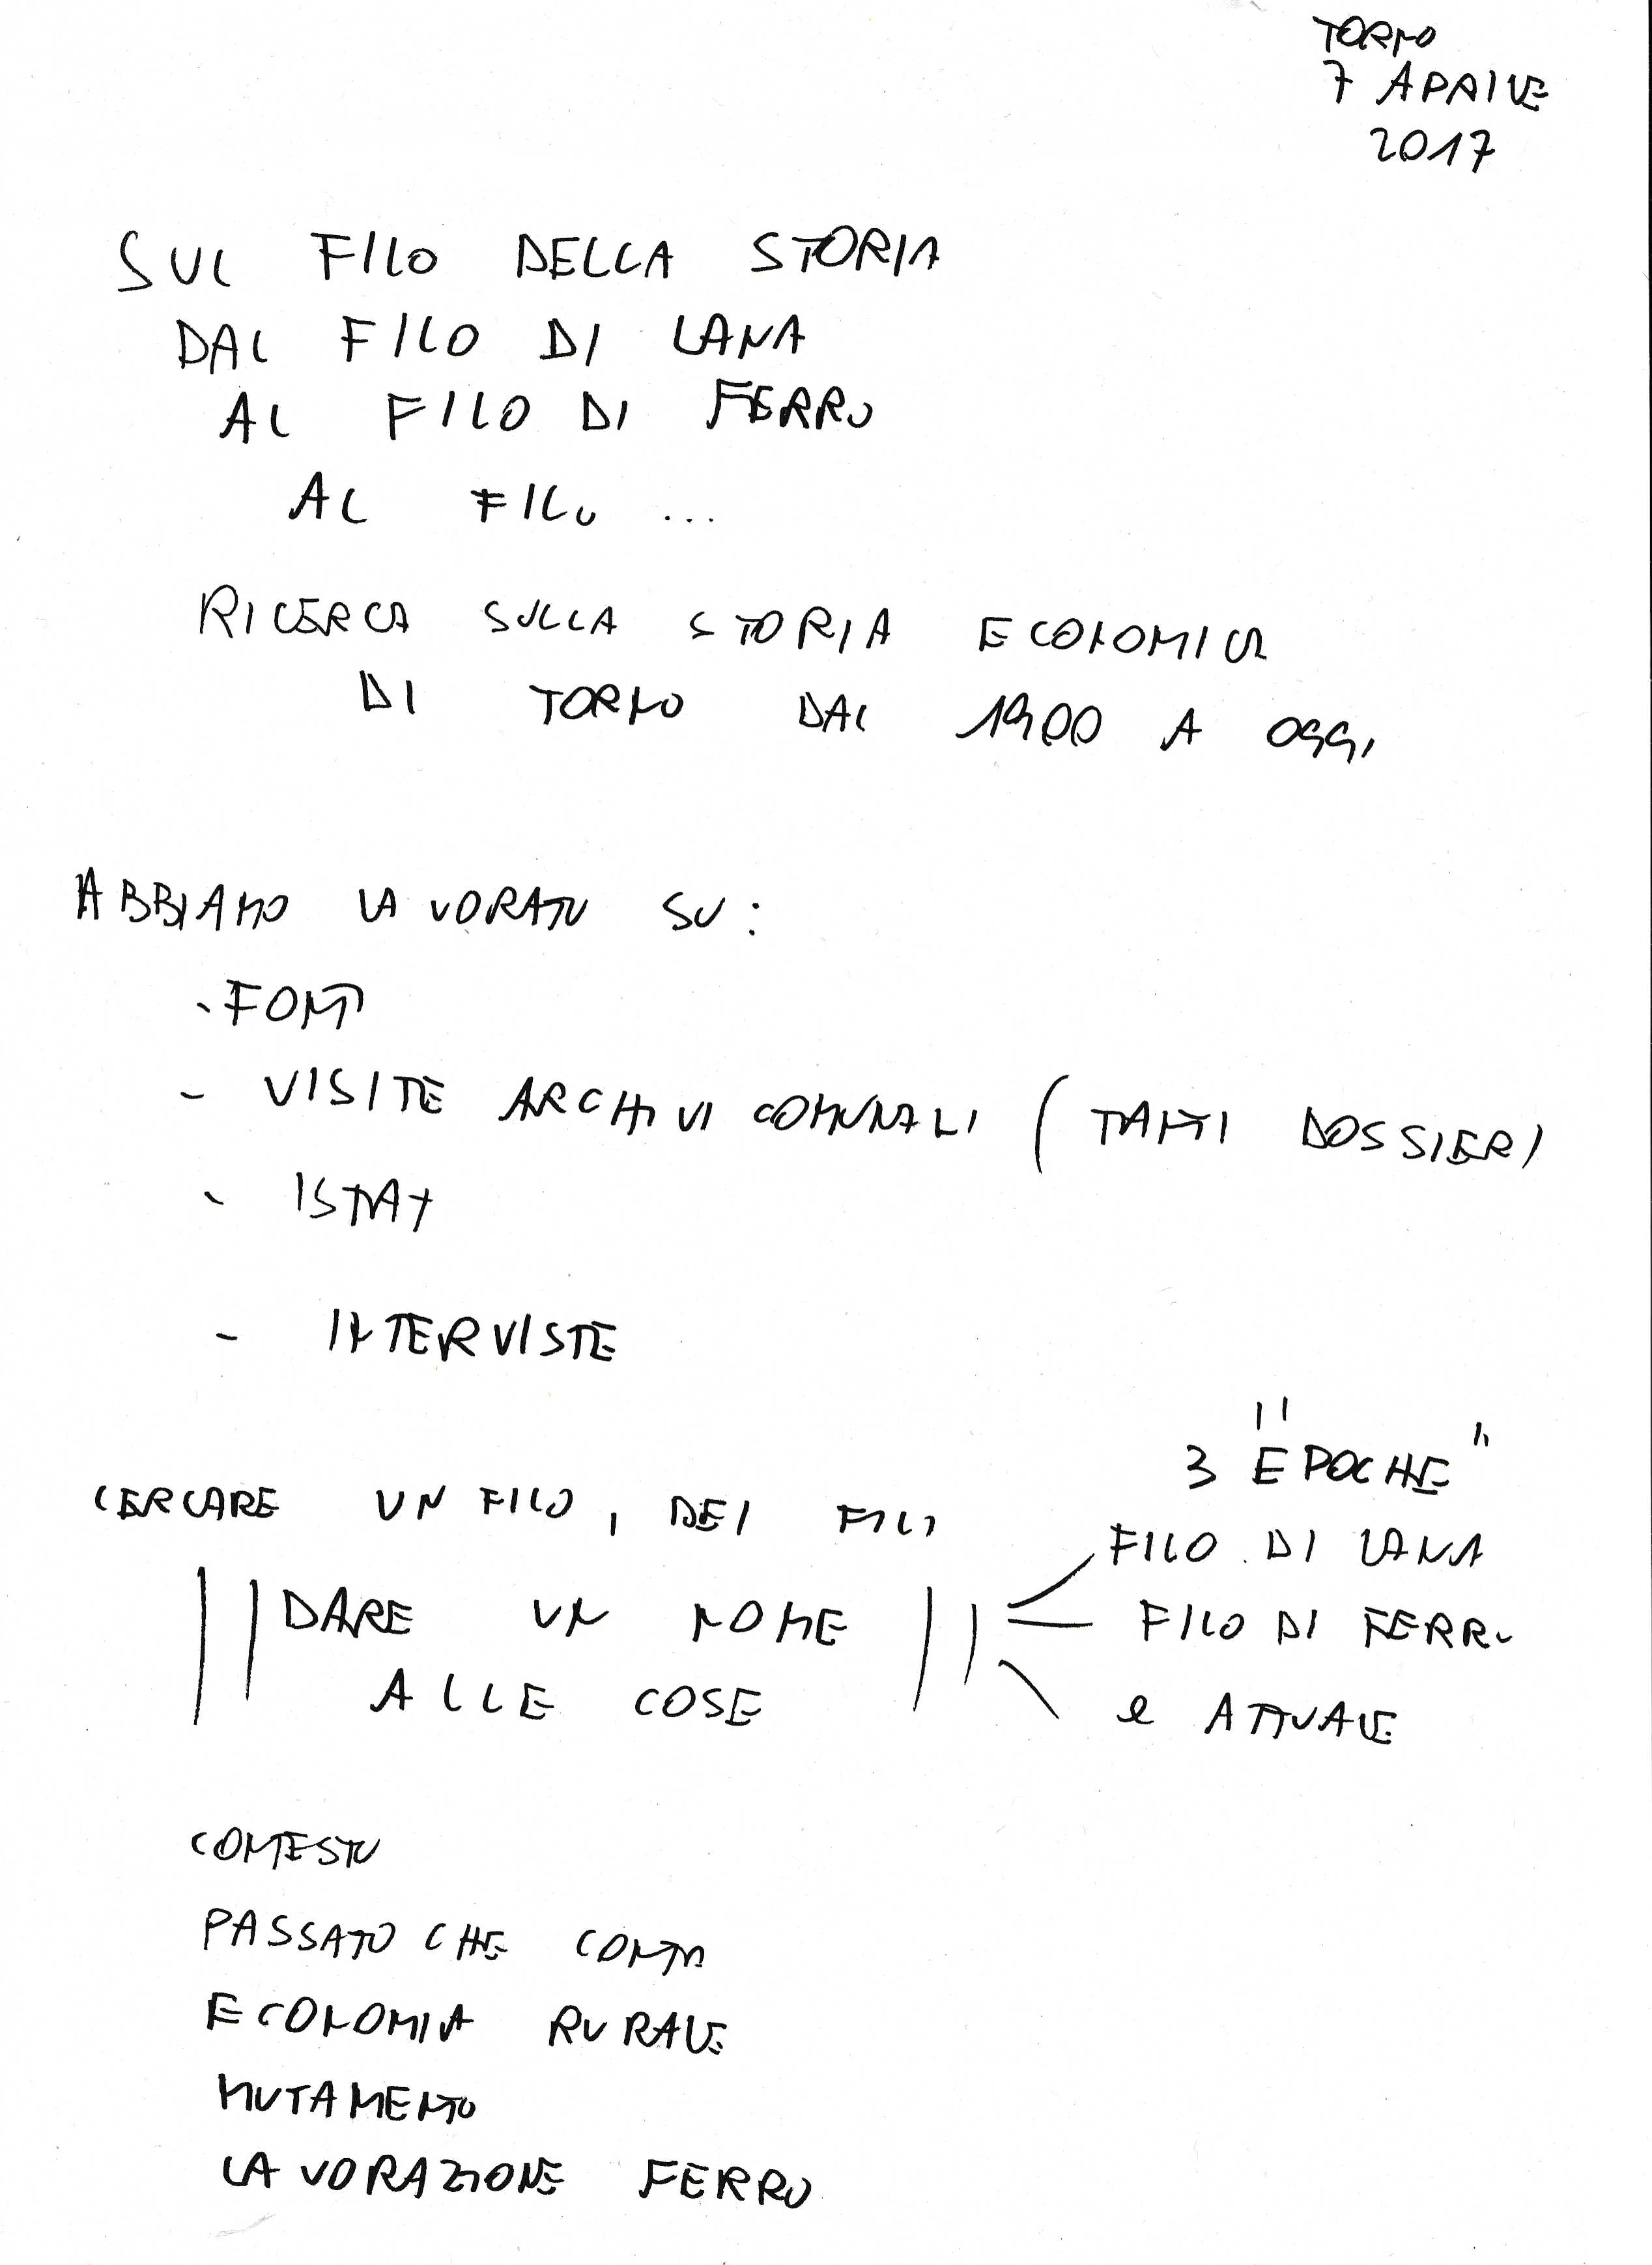 TORNO
7 APRILE
2017
SUL FILO DELLA STORIA
DAL FILO DI LANA
AL FILO DI FERRO
AL FILO ...
RICERCA SULLA STORIA ECONOMICA
DI TORNO DAL 1900 A OGGI
ABBIAMO LAVORATO SU:
- FONTI
- VISITE ARCHIVI COMUNALI (TANTI DOSSIER)
- ISTAT
- INTERVISTE
CERCARE UN FILO, DEI FILI
|| DARE UN NOME
ALLE COSE ||
3 "EPOCHE"
FILO DI LANA
FILO DI FERRO
e ATTUALE
CONTESTO
PASSATO CHE CONTA
ECONOMIA RURALE
MUTAMENTO
LAVORAZIONE FERRO